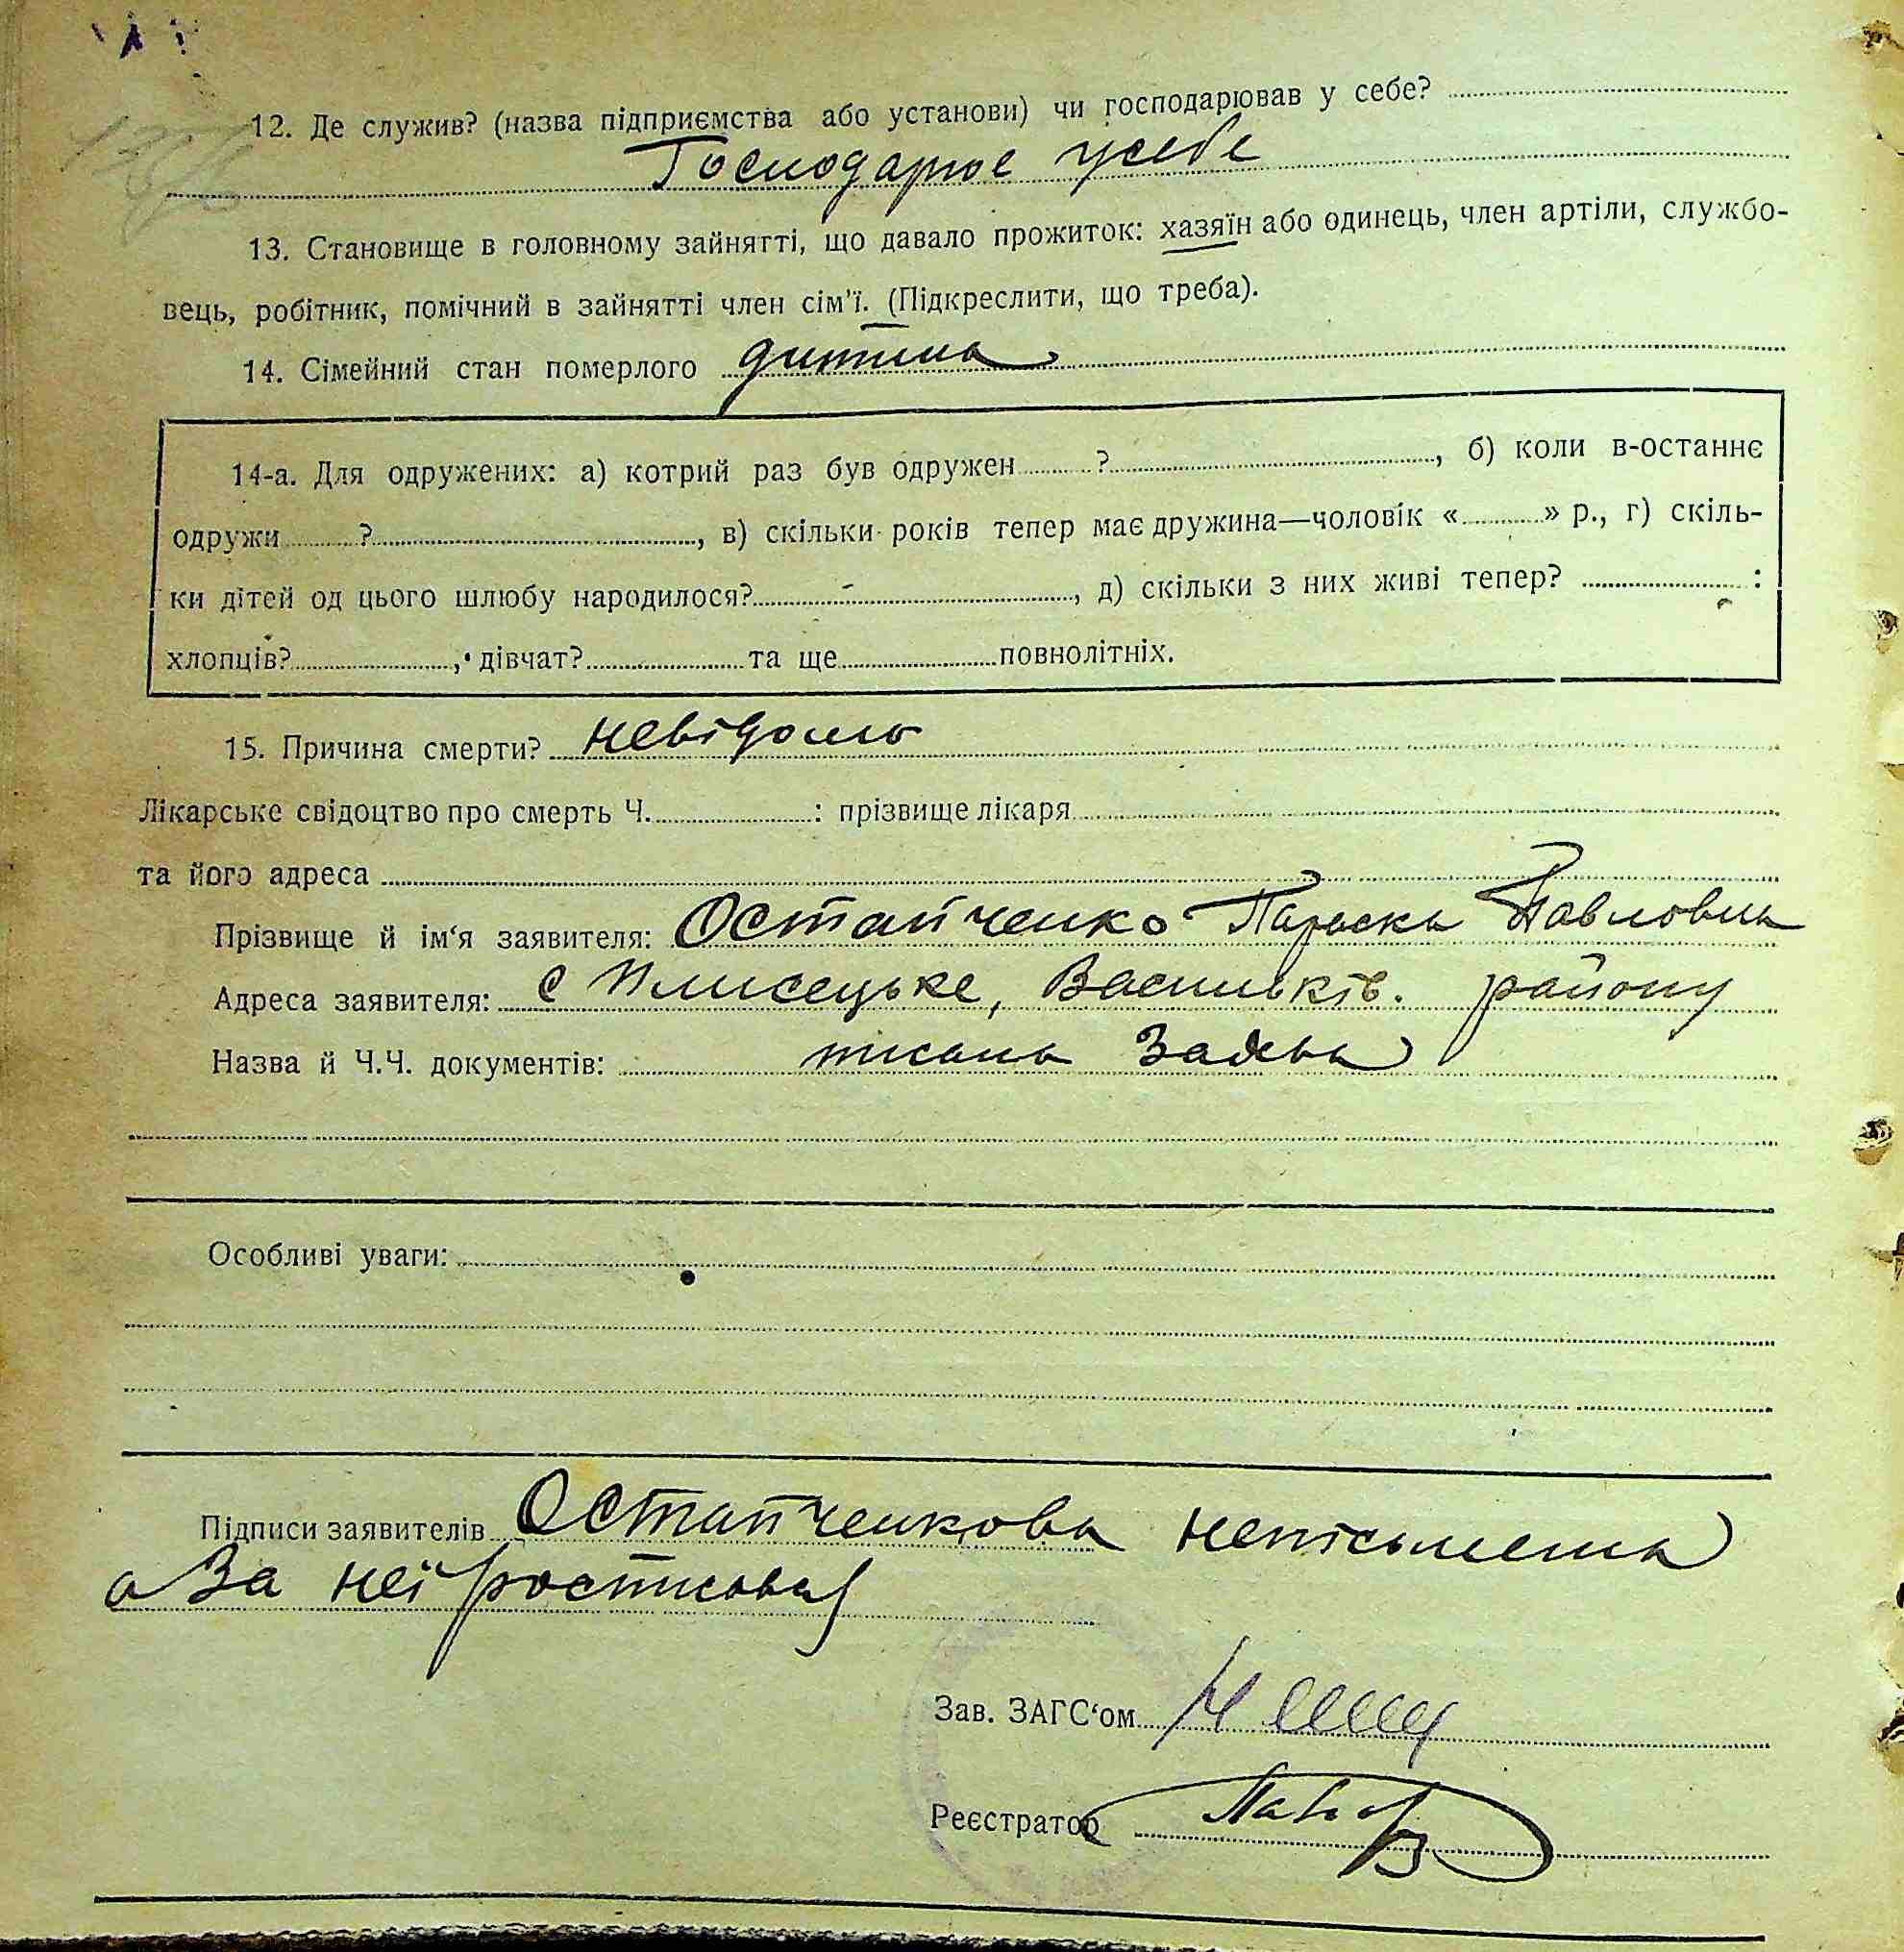 12. Де служив? (назва підприємства або установи) чи господарював у себе?
Господарює усебе
13. Становище в головному зайнятті, що давало прожиток: хазяїн або одинець, член артіли, службо-
вець, робітник, помічний в зайнятті член сім'ї. (Підкреслити, що треба).
14. Сімейний стан померлого дитина
14-а. Для одружених: а) котрий раз був одружен ?, б) коли в-останнє
одружи ?, в) скільки років тепер має дружина—чоловік « » р., г) скіль-
ки дітей од цього шлюбу народилося? -, д) скільки з них живі тепер? :
хлопців? , дівчат? та ще повнолітніх.
15. Причина смерти? невідомо
Лікарське свідоцтво про смерть Ч. : прізвище лікаря
та його адреса
Прізвище й ім'я заявителя: Остапченко Параска Павловна
Адреса заявителя: с Плисецьке, Васильків. району
Назва й Ч.Ч. документів: писана Заява
Особливі уваги:
Підписи заявителів Остапченкова непісьмена
а За неї росписовая
Зав. ЗАГС'ом
Реєстратор